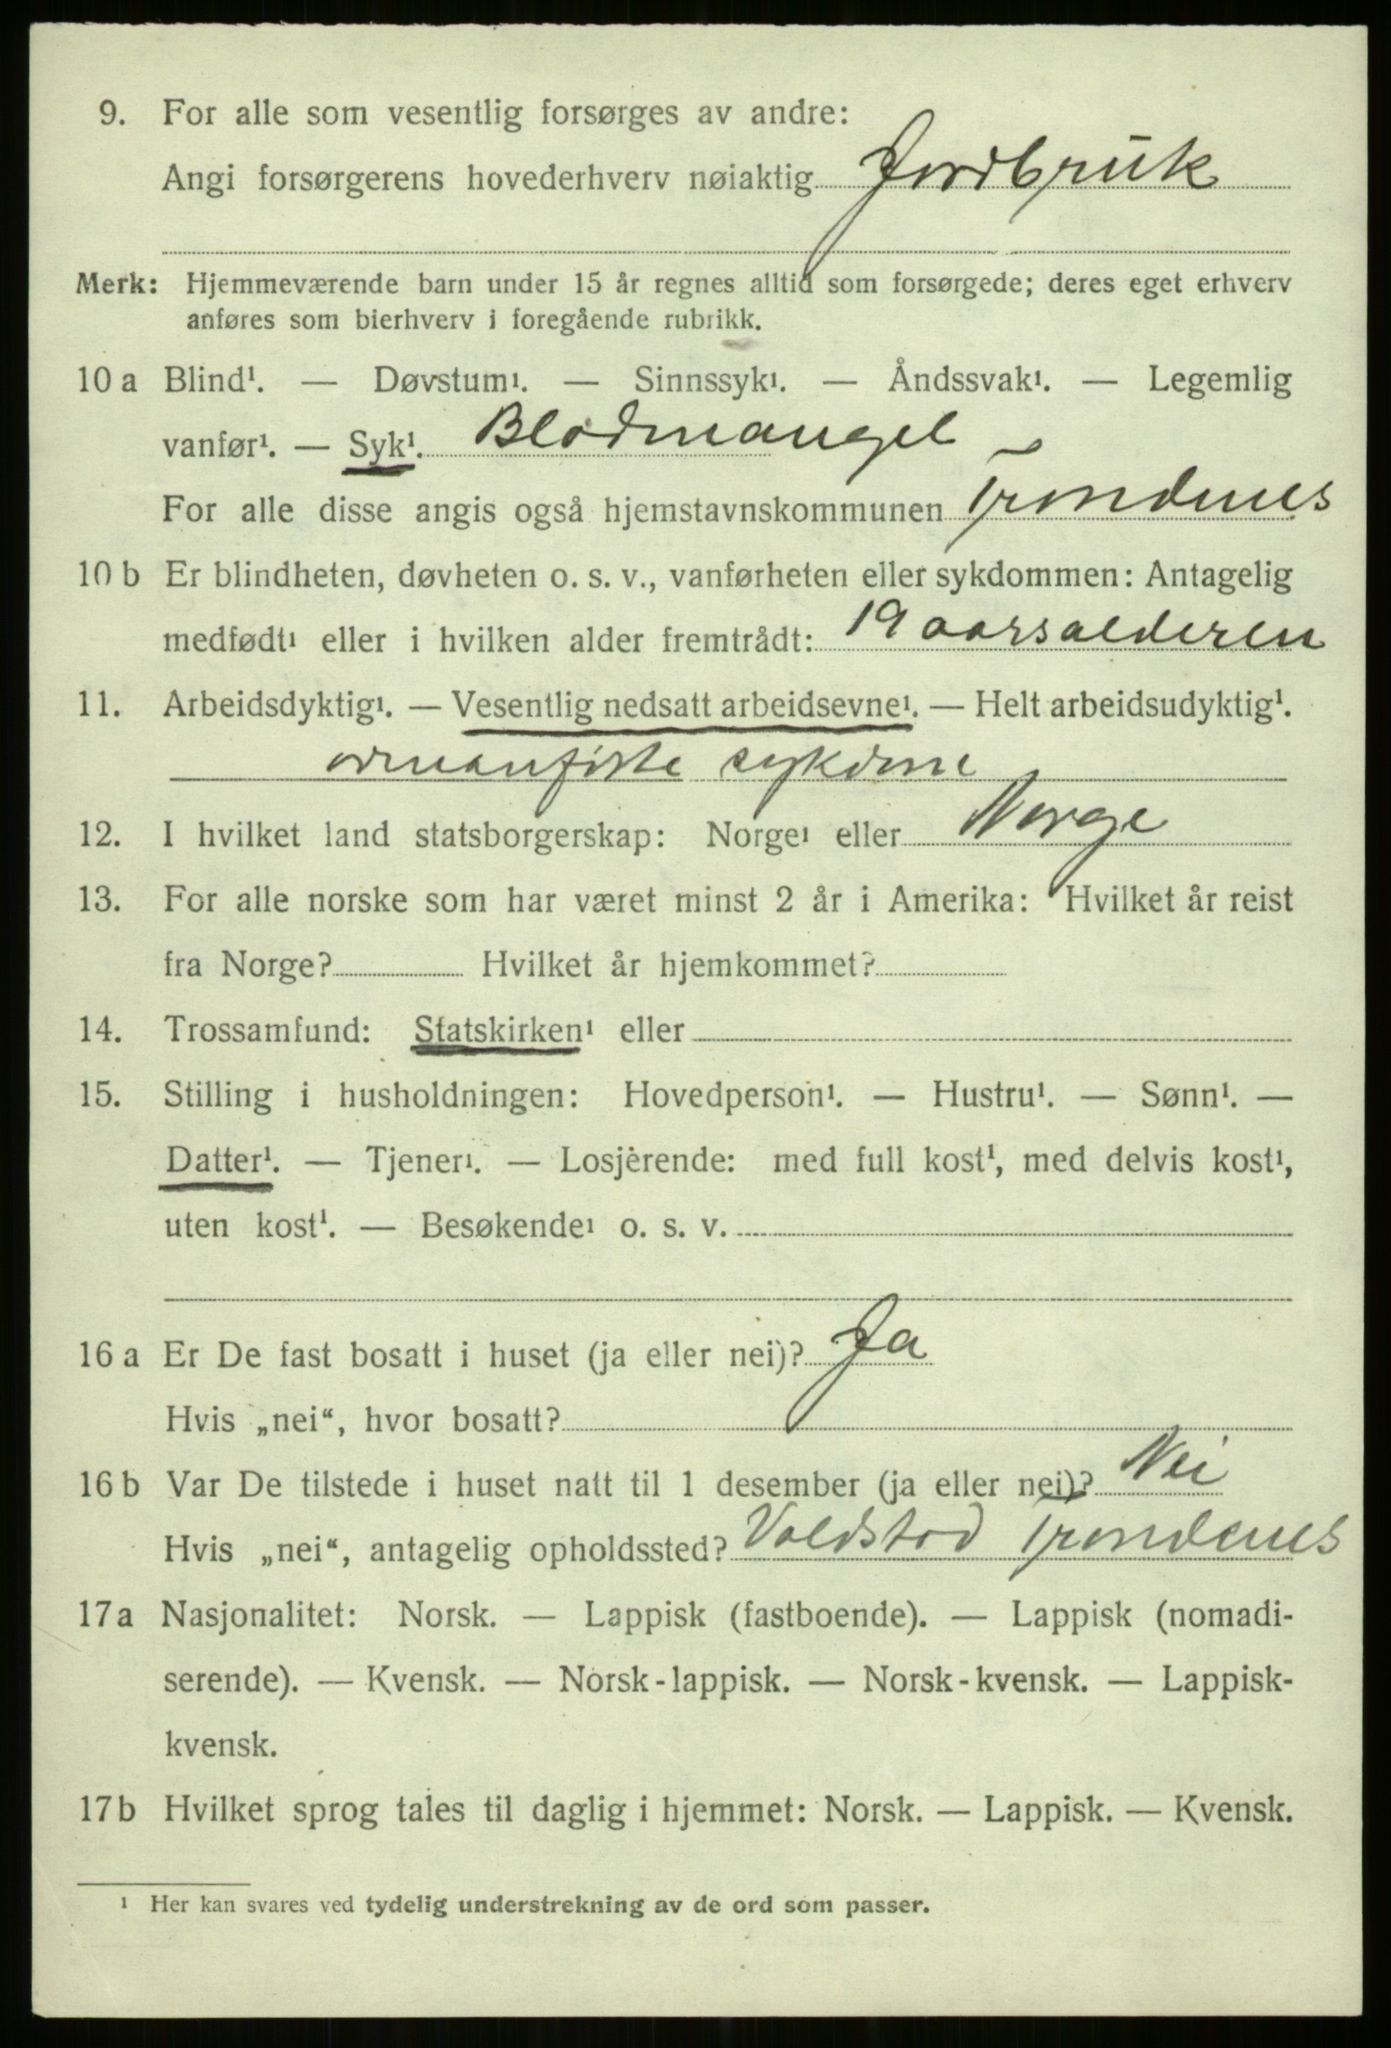 9. For alle som vesentlig forsørges av andre:
Angi forsørgerens hovederhverv nøiaktig Jordbruk
Merk: Hjemmeværende barn under 15 år regnes alltid som forsørgede; deres eget erhverv
anføres som bierhverv i foregående rubrikk.
10 a Blind¹. — Døvstum¹. — Sinnssyk¹. — Åndssvak¹. — Legemlig
vanfør¹. — Syk¹. Blodmangel
For alle disse angis også hjemstavnskommunen Trondenes
10 b Er blindheten, døvheten o. s. v., vanførheten eller sykdommen: Antagelig
medfødt¹ eller i hvilken alder fremtrådt: 19 aarsalderen
11. Arbeidsdyktig¹. — Vesentlig nedsatt arbeidsevne¹. — Helt arbeidsudyktig¹.
12. I hvilket land statsborgerskap: Norge¹ eller Norge
13. For alle norske som har været minst 2 år i Amerika: Hvilket år reist
fra Norge? Hvilket år hjemkommet?
14. Trossamfund: Statskirken¹ eller
15. Stilling i husholdningen: Hovedperson¹. — Hustru¹. — Sønn¹. —
Datter¹. — Tjener¹. — Losjerende: med full kost¹, med delvis kost¹,
uten kost¹. — Besøkende¹ o. s. v.
16 a Er De fast bosatt i huset (ja eller nei)? Ja
Hvis „nei“, hvor bosatt?
16 b Var De tilstede i huset natt til 1 desember (ja eller nei)? Nei
Hvis „nei“, antagelig opholdssted? Voldstad Trondenes
17 a Nasjonalitet: Norsk. — Lappisk (fastboende). — Lappisk (nomadi-
serende). — Kvensk. — Norsk-lappisk. — Norsk-kvensk. — Lappisk-
kvensk.
17 b Hvilket sprog tales til daglig i hjemmet: Norsk. — Lappisk. — Kvensk.
¹ Her kan svares ved tydelig understrekning av de ord som passer.